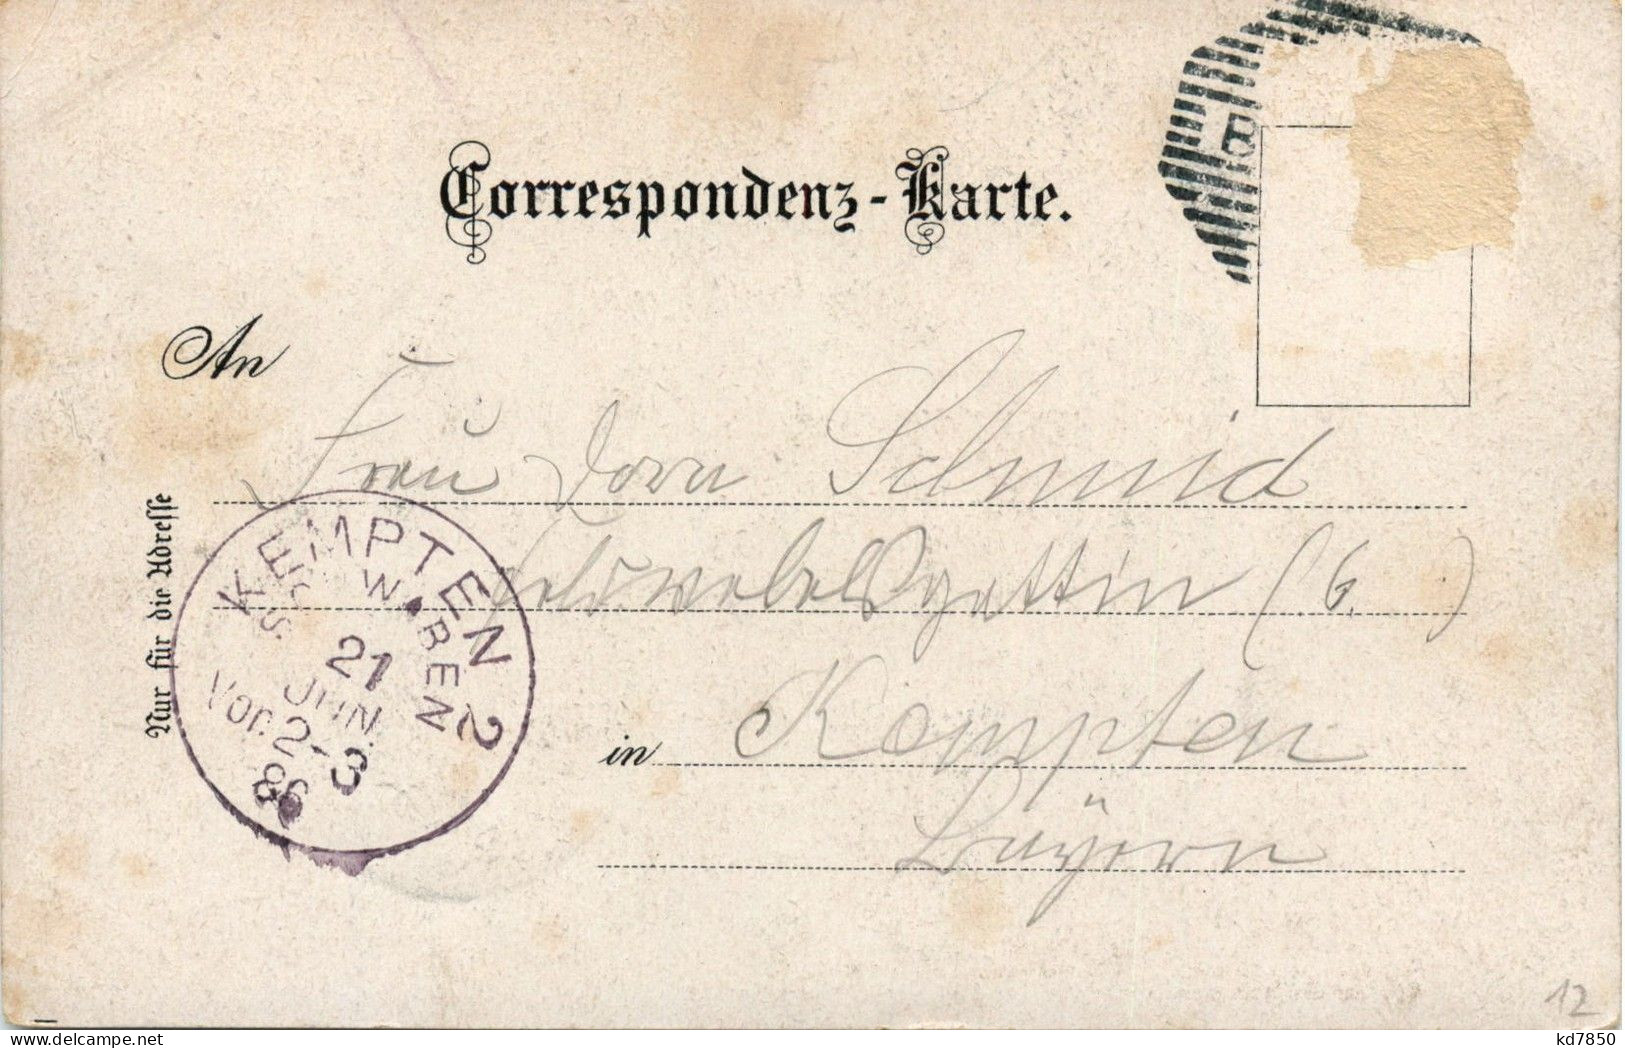 Correspondenz-Karte.
B
An
Frau Dora Schmid
Feldwebelsgattin (G. )
in Kempten
Bayern
Nur für die Adresse
KEMPTEN 2
SCHWABEN
21
JUN.
Vor. 2-3
98
12
kd7850